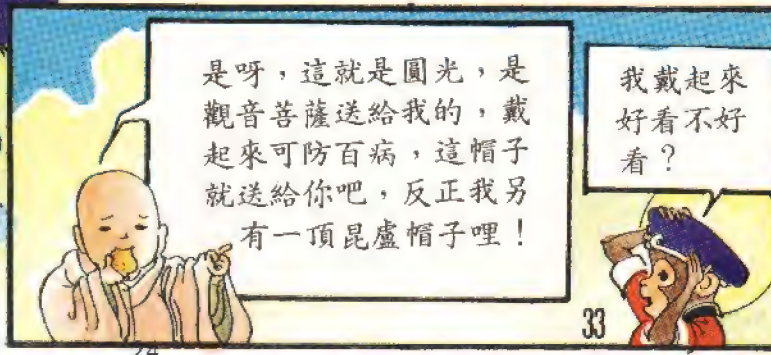 是呀，這就是圓光，是
觀音菩薩送給我的，戴
起來可防百病，這帽子
就送給你吧，反正我另
有一頂昆盧帽子哩！
我戴起來
好看不好
看？
33
24